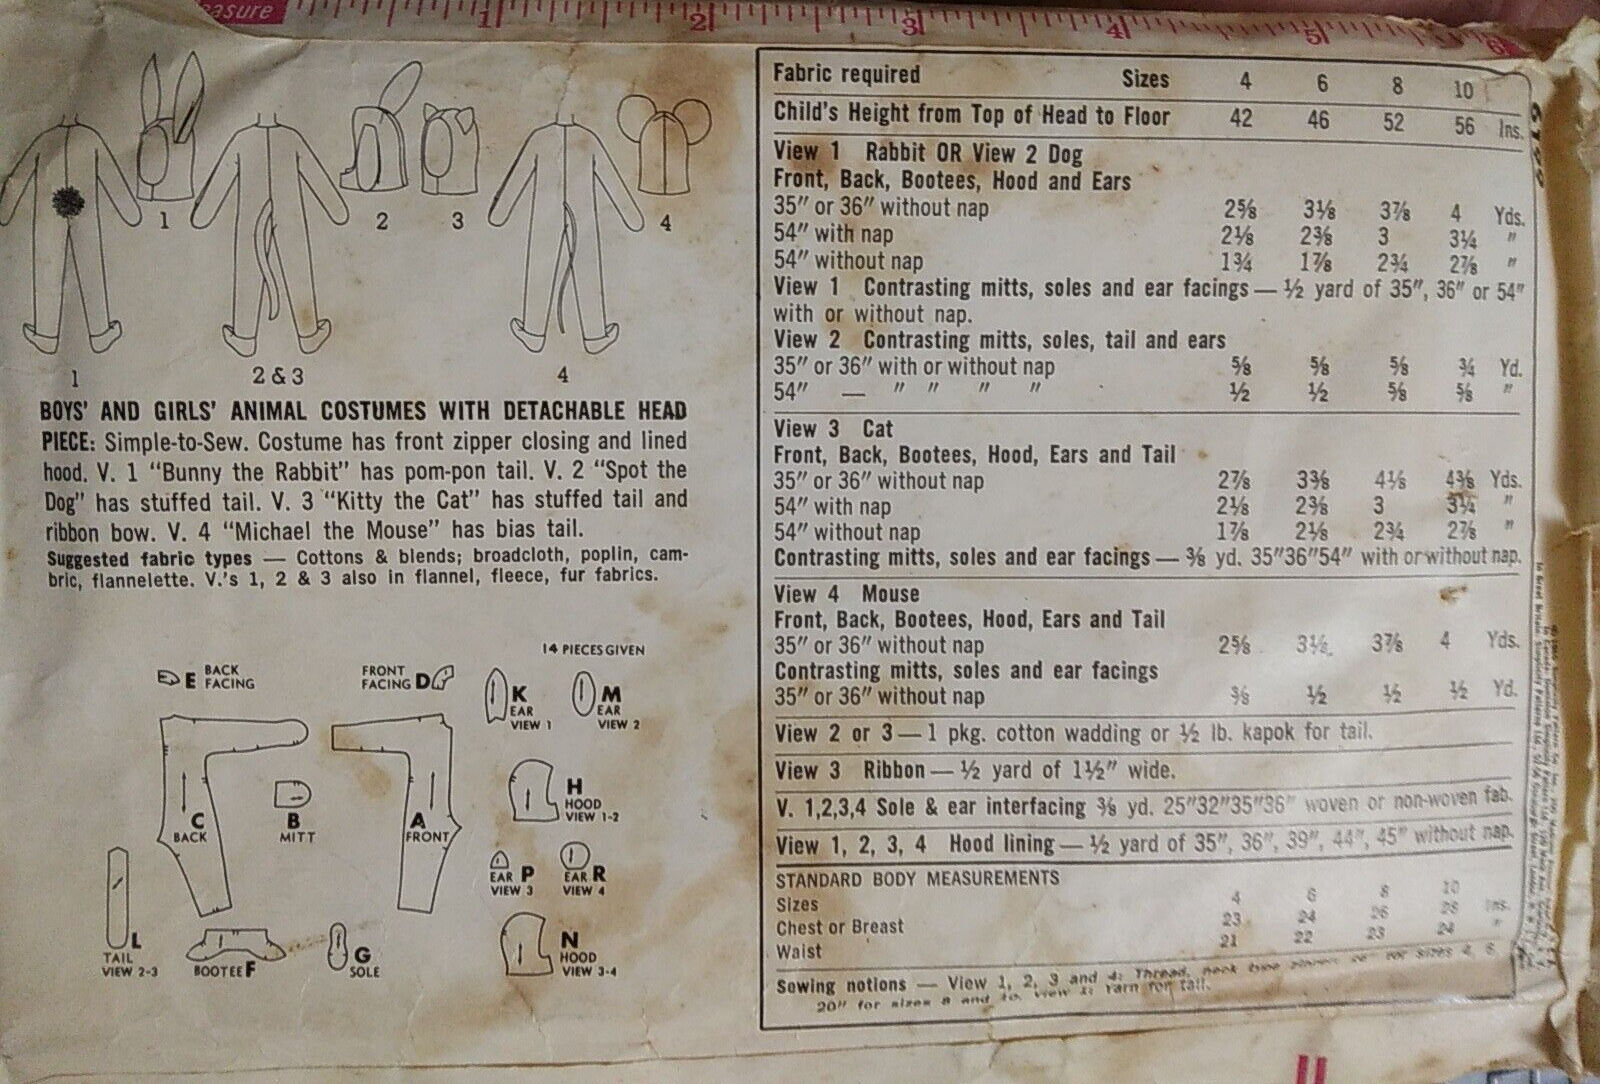 easure 1 2 3 4 5 6
1
2
3
4
1
2 & 3
4
BOYS' AND GIRLS' ANIMAL COSTUMES WITH DETACHABLE HEAD
PIECE: Simple-to-Sew. Costume has front zipper closing and lined
hood. V. 1 “Bunny the Rabbit” has pom-pon tail. V. 2 “Spot the
Dog” has stuffed tail. V. 3 “Kitty the Cat” has stuffed tail and
ribbon bow. V. 4 “Michael the Mouse” has bias tail.
Suggested fabric types — Cottons & blends; broadcloth, poplin, cam-
bric, flannelette. V.'s 1, 2 & 3 also in flannel, fleece, fur fabrics.
14 PIECES GIVEN
E BACK
FACING
FRONT
FACING D
K
EAR
VIEW 1
M
EAR
VIEW 2
C
BACK
B
MITT
A
FRONT
H
HOOD
VIEW 1-2
EAR P
VIEW 3
EAR R
VIEW 4
L
TAIL
VIEW 2-3
BOOTEE F
G
SOLE
N
HOOD
VIEW 3-4
Fabric required Sizes 4 6 8 10
Child's Height from Top of Head to Floor 42 46 52 56 Ins.
View 1 Rabbit OR View 2 Dog
Front, Back, Bootees, Hood and Ears
35″ or 36″ without nap 2⅝ 3⅛ 3⅞ 4 Yds.
54″ with nap 2⅛ 2⅜ 3 3¼ ″
54″ without nap 1¾ 1⅞ 2¾ 2⅞ ″
View 1 Contrasting mitts, soles and ear facings — ½ yard of 35″, 36″ or 54″
with or without nap.
View 2 Contrasting mitts, soles, tail and ears
35″ or 36″ with or without nap ⅝ ⅝ ⅝ ¾ Yd.
54″ — ″ ″ ″ ″ ½ ½ ⅝ ⅝ ″
View 3 Cat
Front, Back, Bootees, Hood, Ears and Tail
35″ or 36″ without nap 2⅞ 3⅜ 4⅛ 4⅜ Yds.
54″ with nap 2⅛ 2⅜ 3 3¼ ″
54″ without nap 1⅞ 2⅛ 2¾ 2⅞ ″
Contrasting mitts, soles and ear facings — ⅜ yd. 35″36″54″ with or without nap.
View 4 Mouse
Front, Back, Bootees, Hood, Ears and Tail
35″ or 36″ without nap 2⅝ 3⅛ 3⅞ 4 Yds.
Contrasting mitts, soles and ear facings
35″ or 36″ without nap ⅜ ½ ½ ½ Yd.
View 2 or 3 — 1 pkg. cotton wadding or ½ lb. kapok for tail.
View 3 Ribbon — ½ yard of 1½″ wide.
V. 1,2,3,4 Sole & ear interfacing ⅜ yd. 25″32″35″36″ woven or non-woven fab.
View 1, 2, 3, 4 Hood lining — ½ yard of 35″, 36″, 39″, 44″, 45″ without nap.
STANDARD BODY MEASUREMENTS
Sizes 4 6 8 10
Chest or Breast 23 24 26 28 Ins.
Waist 21 22 23 24 ″
Sewing notions — View 1, 2, 3 and 4: Thread, neck type zipper for sizes 4, 6,
20″ for sizes 8 and 10. View 1: Yarn for tail.